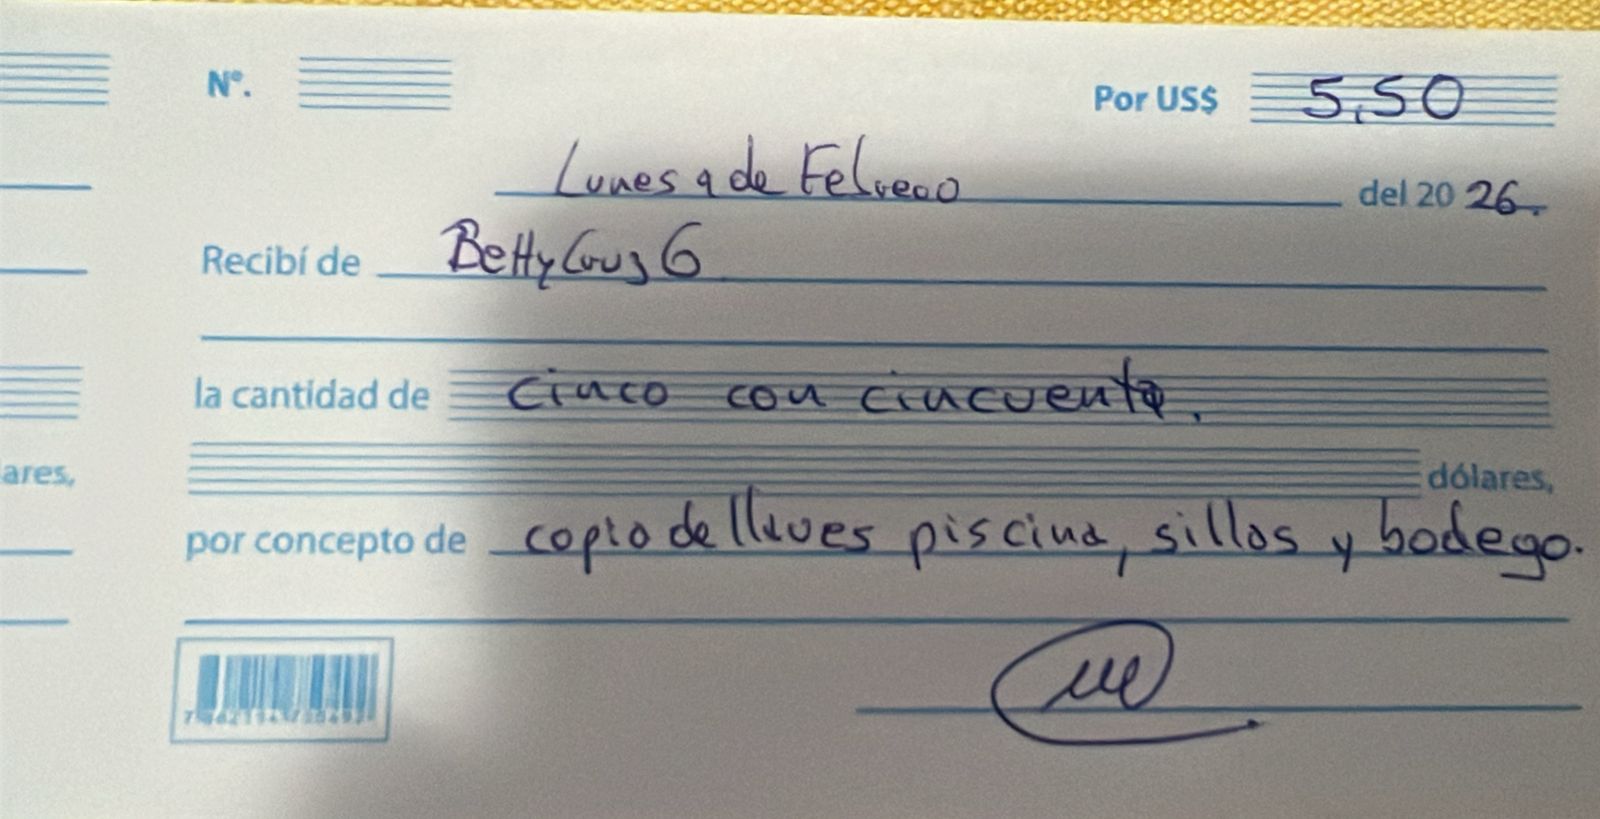 Nº.
Por US$ 5,50
Lunes 9 de Febrero del 20 26.
Recibí de Betty Cruz G
la cantidad de cinco con cincuenta.
ares,
dólares,
por concepto de copia de llaves piscina, sillas y bodega.